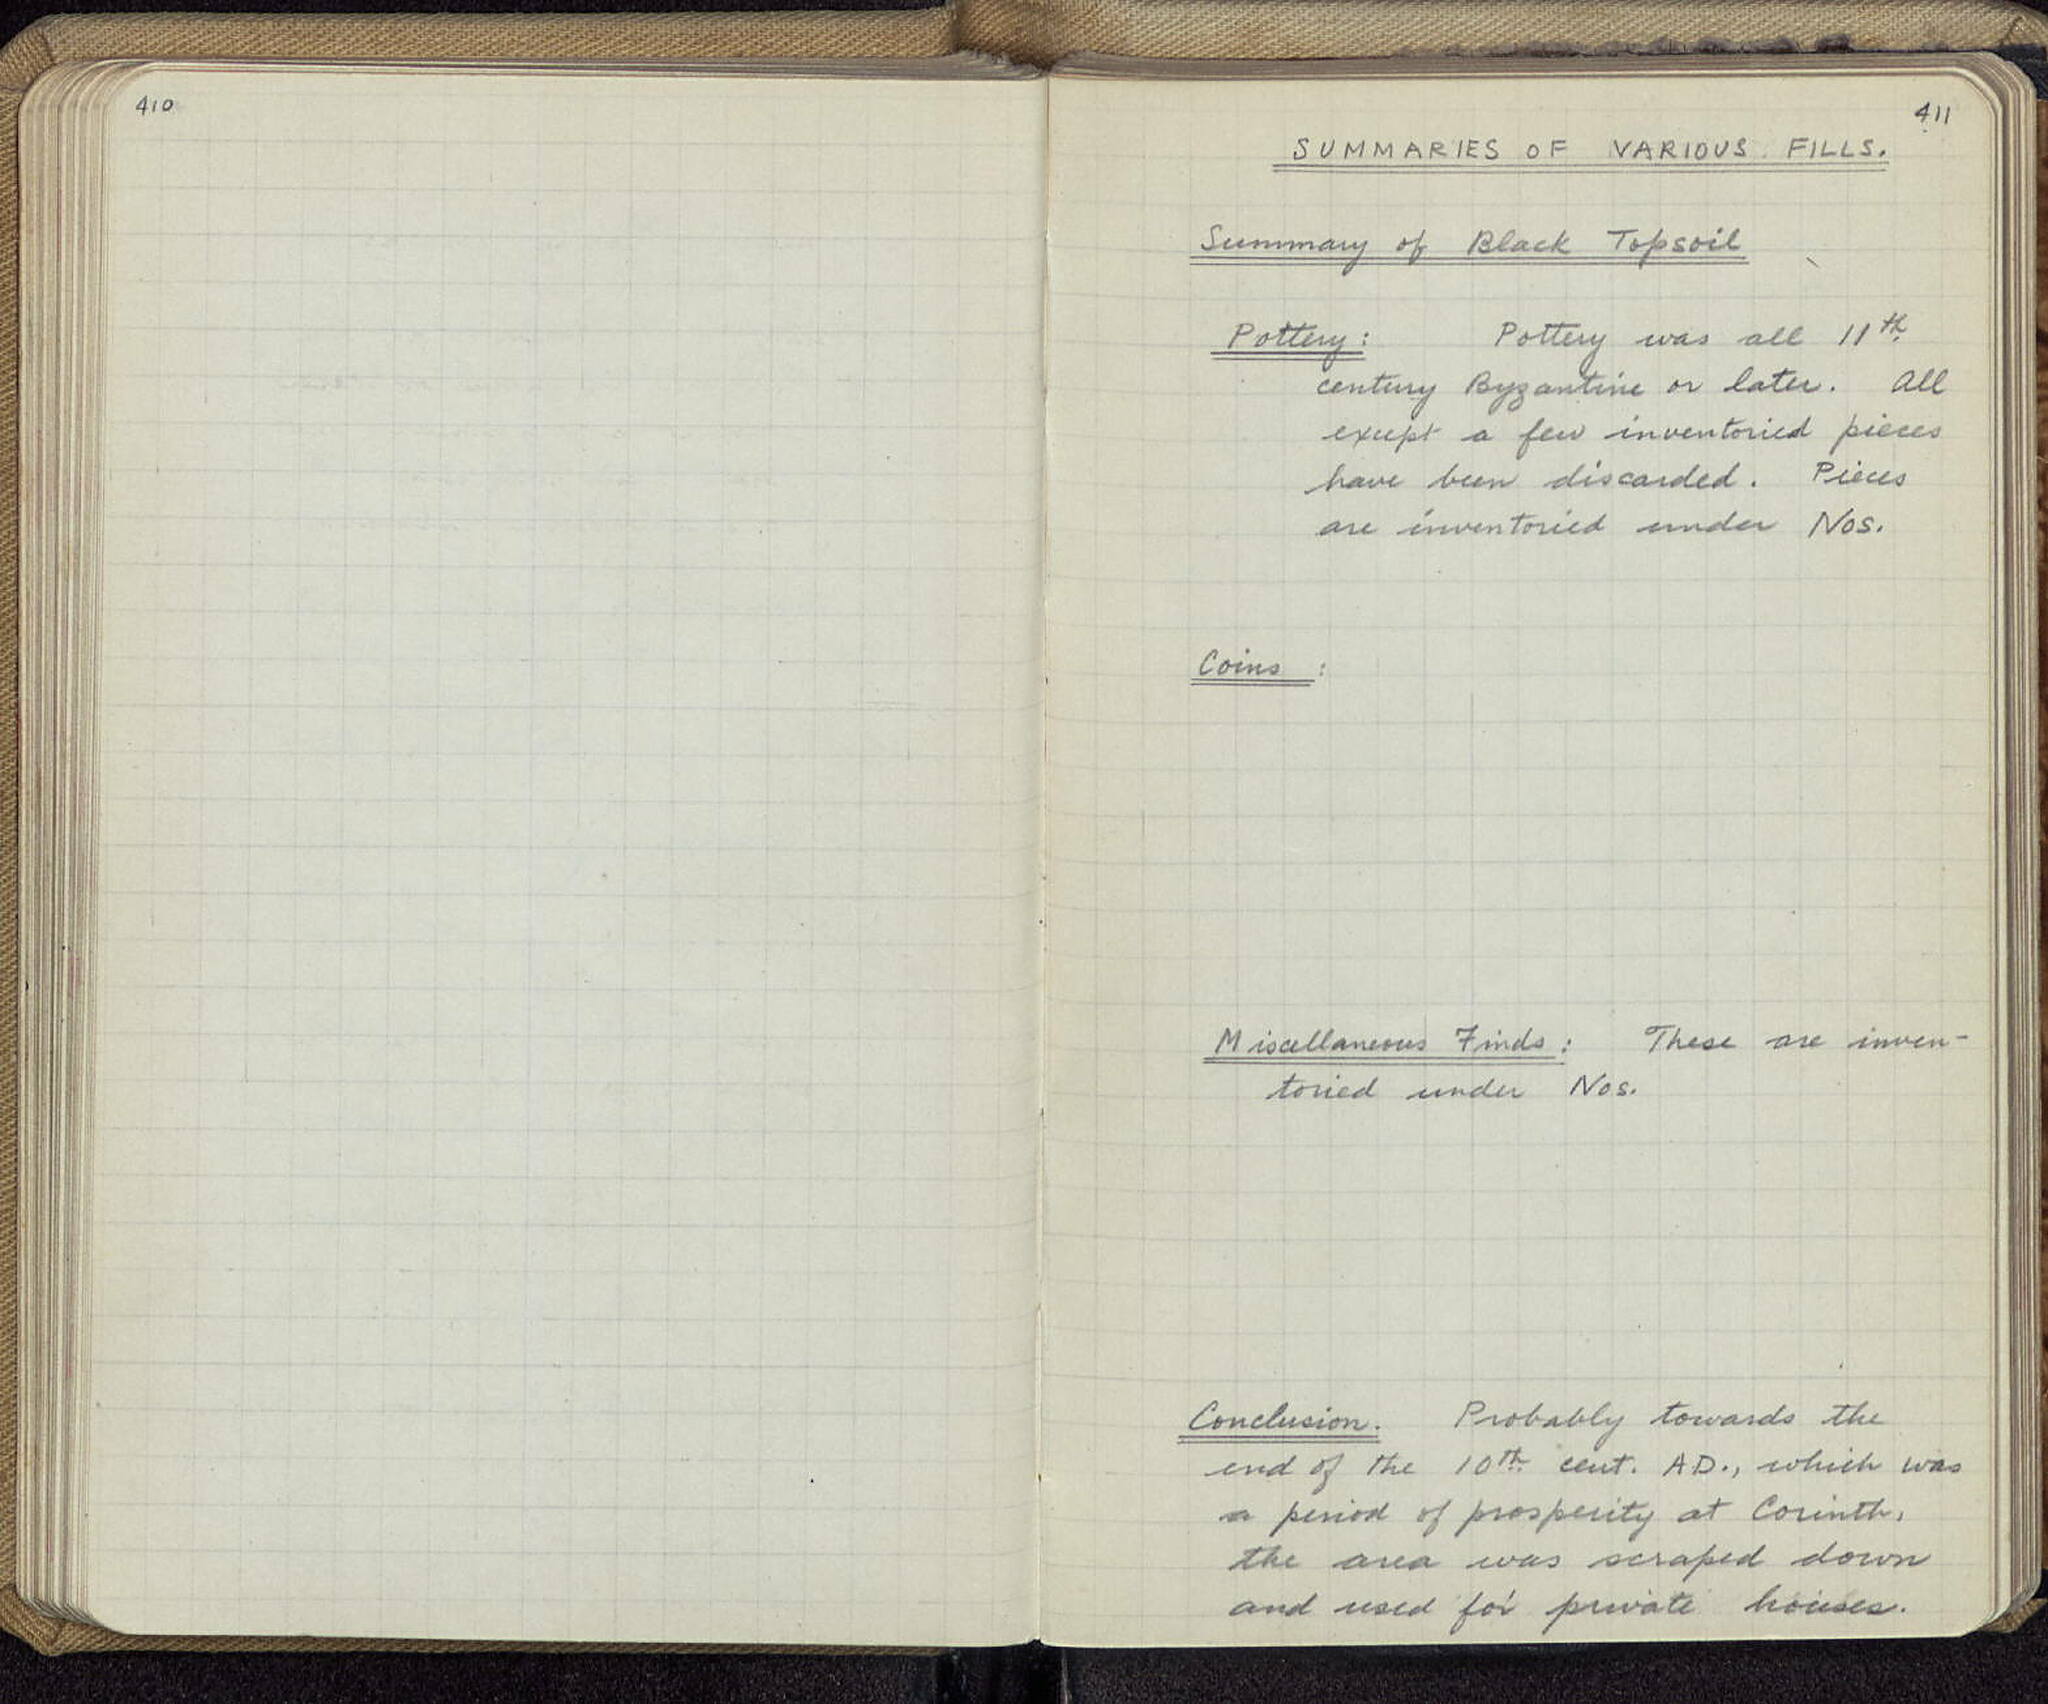 410
411
SUMMARIES OF VARIOUS FILLS.
Summary of Black Topsoil
Pottery: Pottery was all 11th
century Byzantine or later. All
except a few inventoried pieces
have been discarded. Pieces
are inventoried under Nos.
Coins :
Miscellaneous Finds: These are inven-
toried under Nos.
Conclusion. Probably towards the
end of the 10th cent. A.D., which was
a period of prosperity at Corinth,
the area was scraped down
and used for private houses.